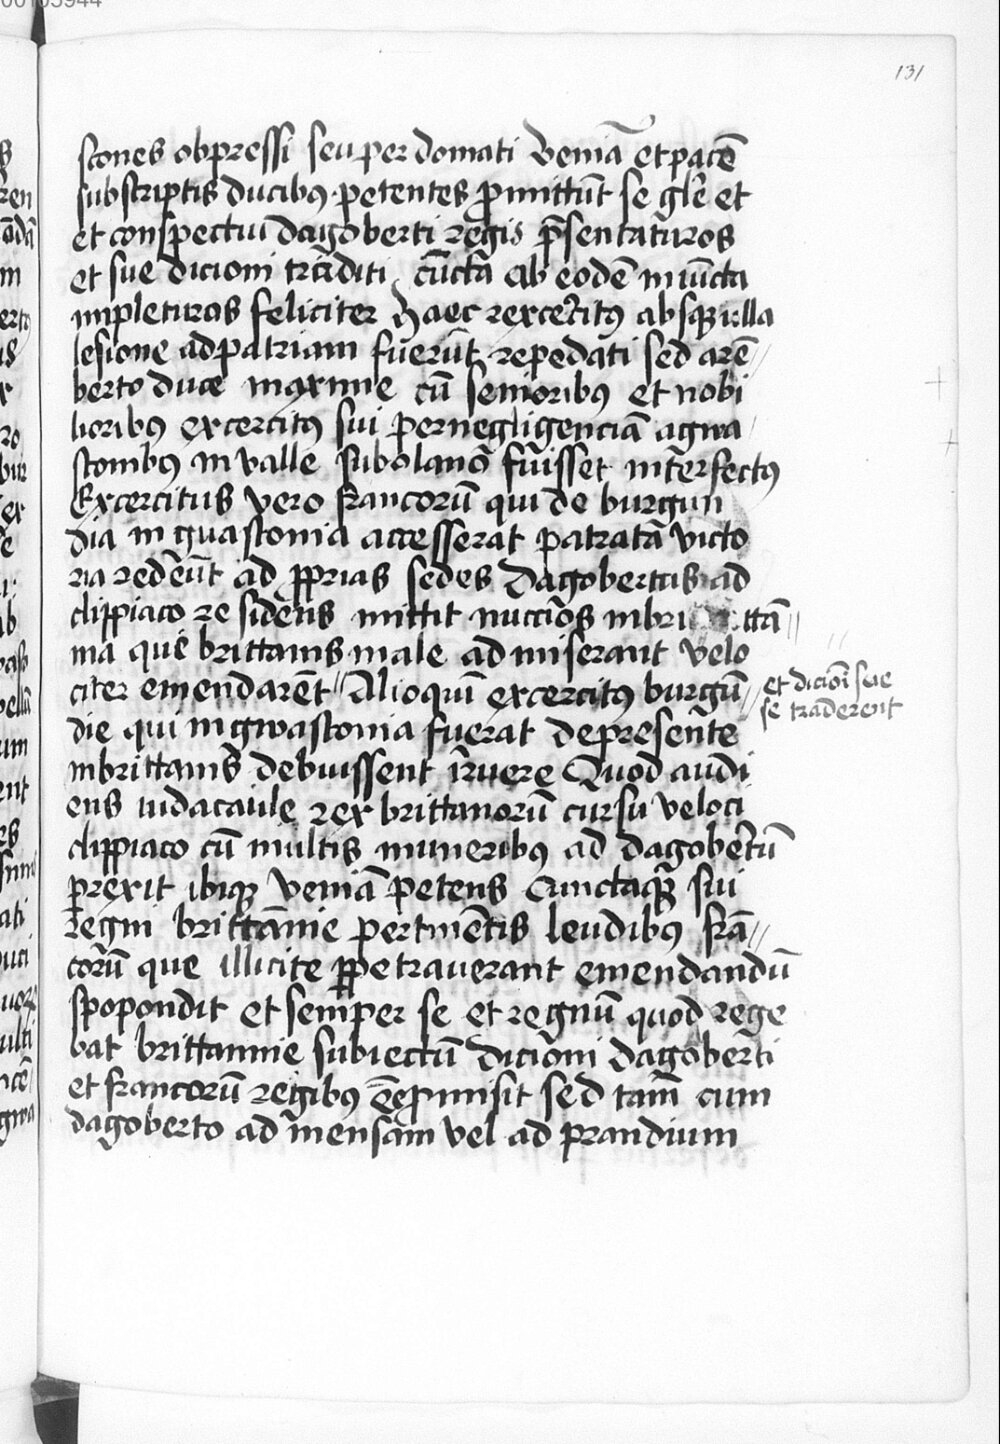 131
scones obpressi seu per domati veniā et pacē
subscriptis ducibus petentes ꝓmittūt se gl̄e et
et conspectui dagoberti regis p̄sentaturos
et sue dicioni traditi cūcta ab eodē iniūcta
impleturos feliciter haec rexcercitus absqꝫ ulla
lesione ad patriam fuerūt repedati sed arē
berto duce maxime cū senioribus et nobi
lioribus excercitus sui per negligenciā a gwa
sconibus in valle subolanō fuisset interfectus
Excercitus vero francorū qui de burgun
dia in guasconia accesserat patrata victo
ria redeūt ad ꝓprias sedes Dagobertus ad
clippiaco residens mittit nuccios in
ma que brittanis male admiserant velo
citer emendarēt // Alioqui excercitus burgū //
et dicioni sue
se traderent
die qui in gwasconia fuerat de presente
in brittanis debuissent irruere Quod audi
ens iudacaile rex brittanorū cursu veloci
clippiaco cū multis muneribus ad dagobertū
prexit ibiqꝫ veniā petens Cunctaqꝫ sui
regni brittānie pertinētis leudibus frā //
corū que illicite ꝑpetrauerant emendandū
spopondit et semper se et regnū quod rege
bat brittannie subiectū dicioni dagoberti
et francorū regibus eē ꝓmisit sed tam̄ cum
dagoberto ad mensam vel ad prandium